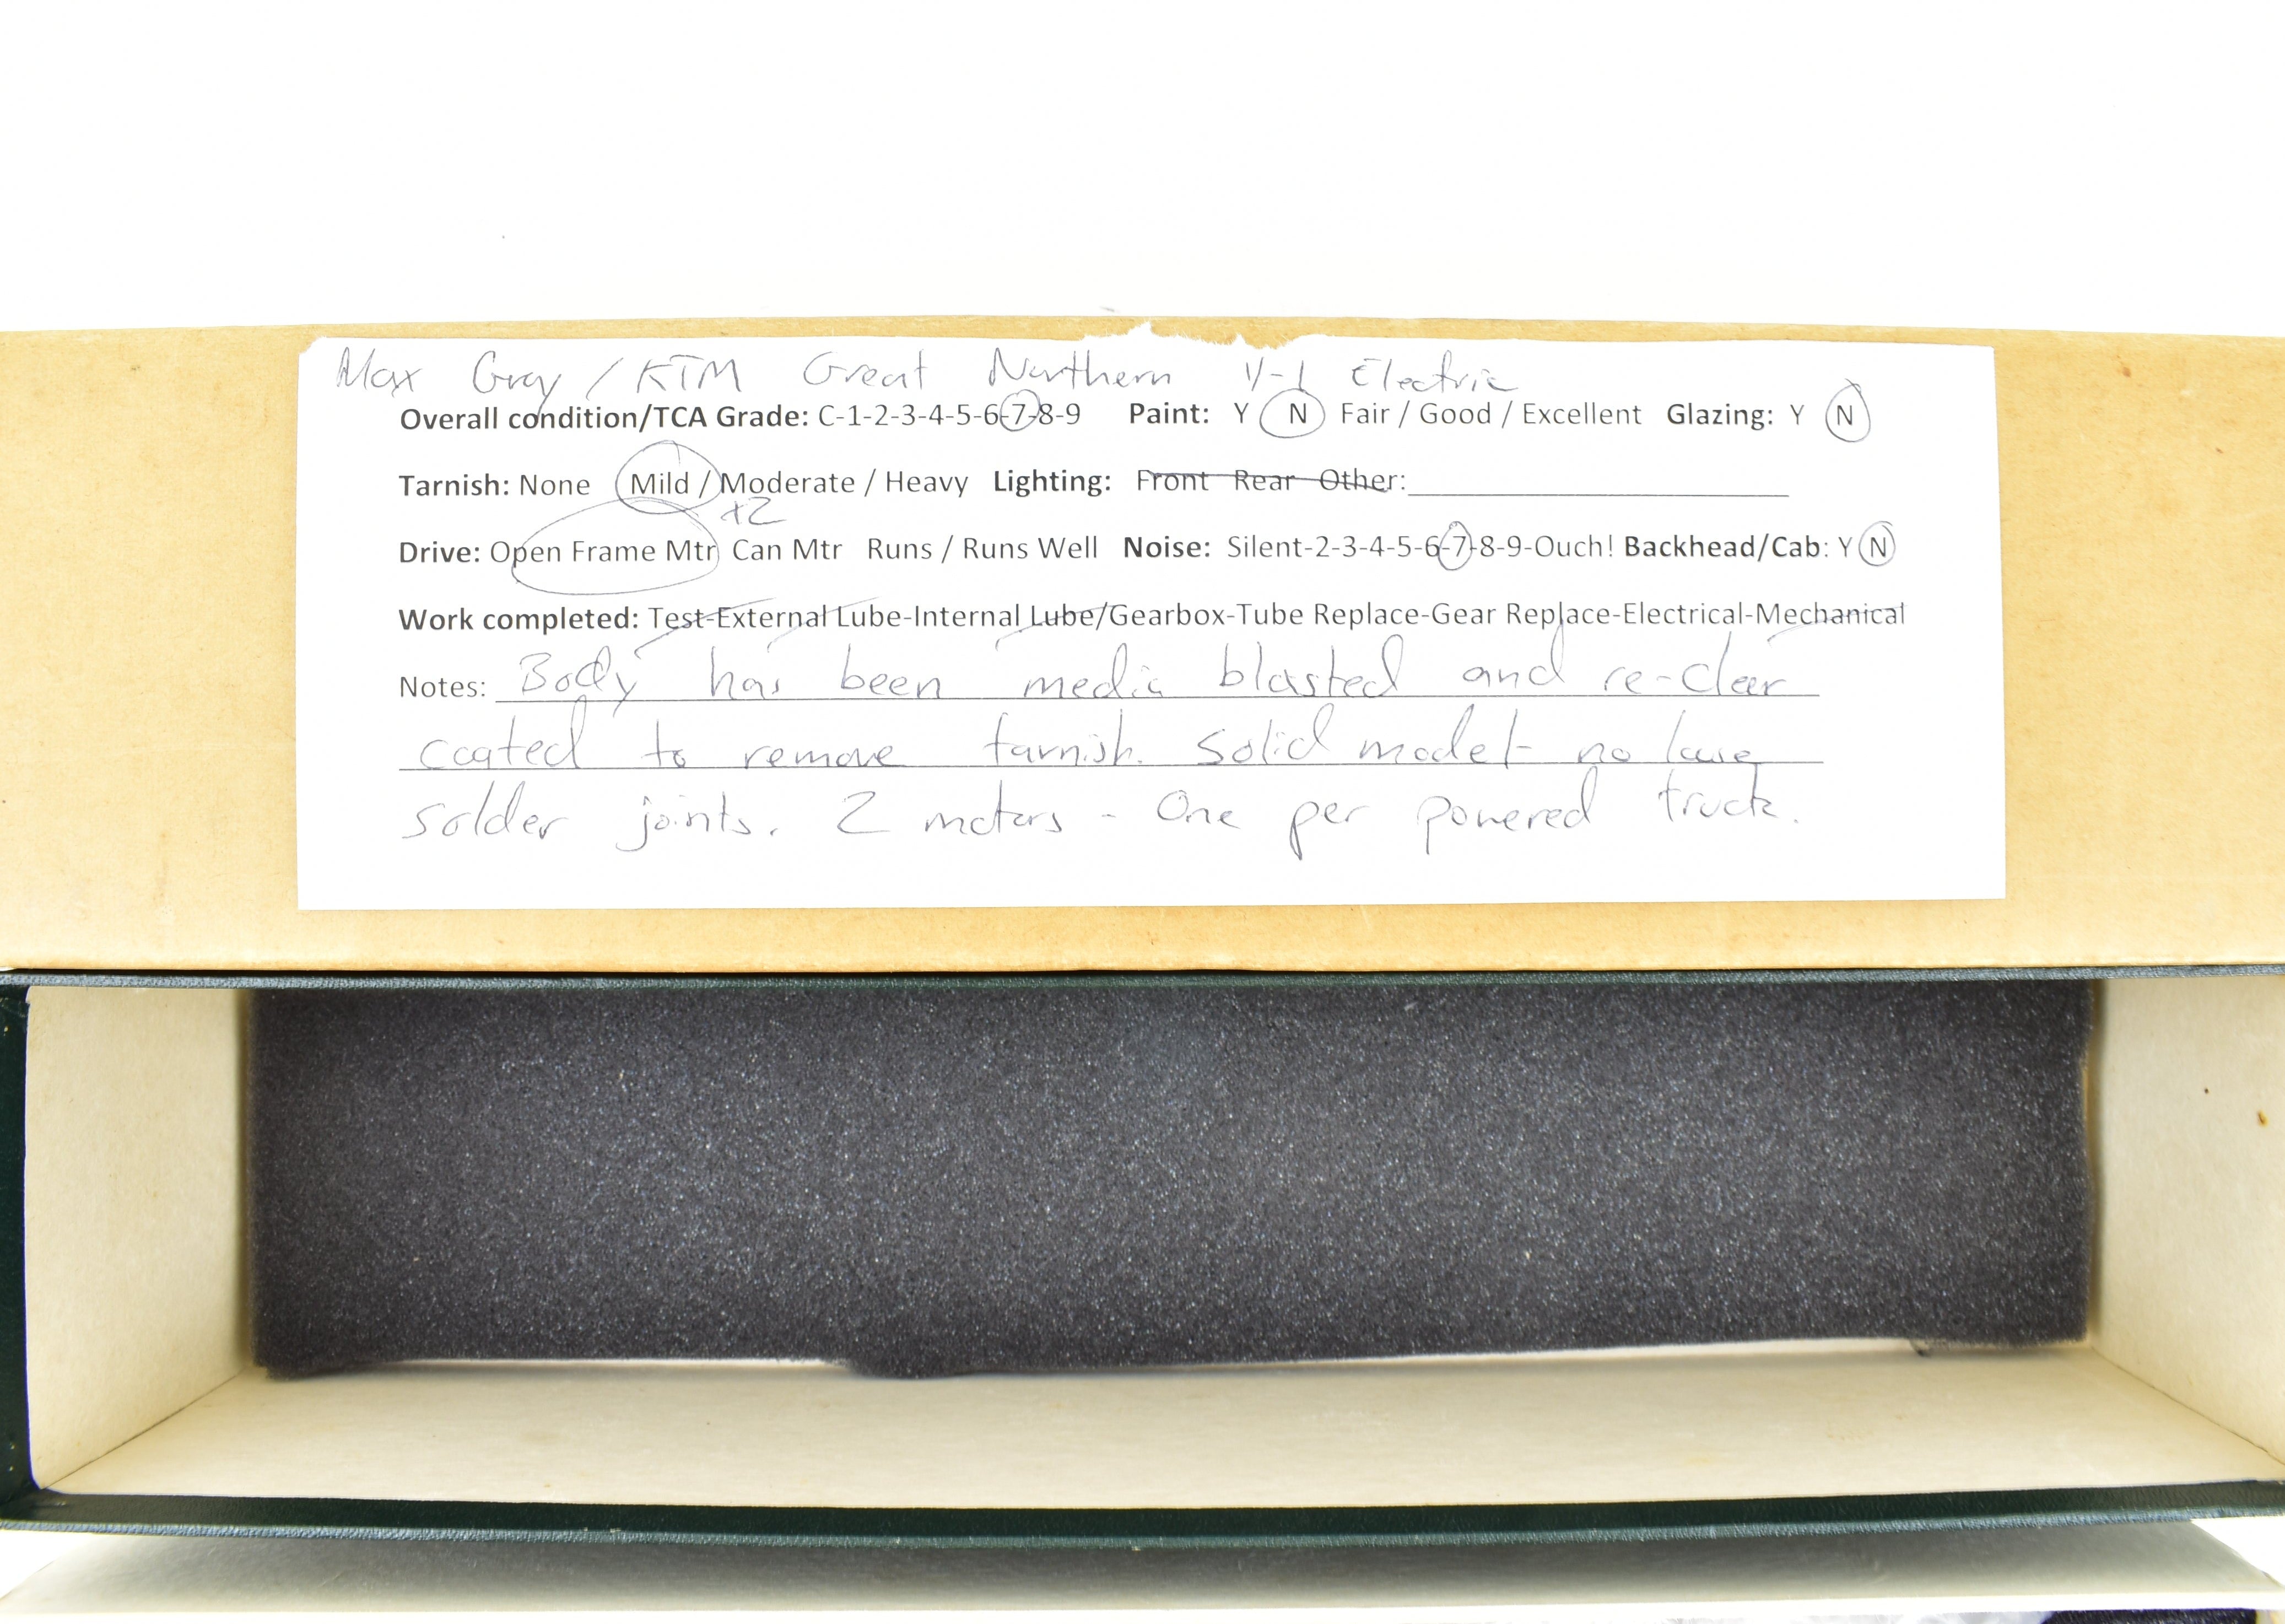 Max Gray / KTM Great Northern Y-1 Electric
Overall condition/TCA Grade: C-1-2-3-4-5-6-7-8-9 Paint: Y N Fair / Good / Excellent Glazing: Y N
Tarnish: None Mild / Moderate / Heavy Lighting: Front Rear Other:
x2
Drive: Open Frame Mtr Can Mtr Runs / Runs Well Noise: Silent-2-3-4-5-6-7-8-9-Ouch! Backhead/Cab: Y N
Work completed: Test-External Lube-Internal Lube/Gearbox-Tube Replace-Gear Replace-Electrical-Mechanical
Notes: Body has been media blasted and re-clear
coated to remove tarnish. Solid model - no
solder joints. 2 motors - One per powered truck.